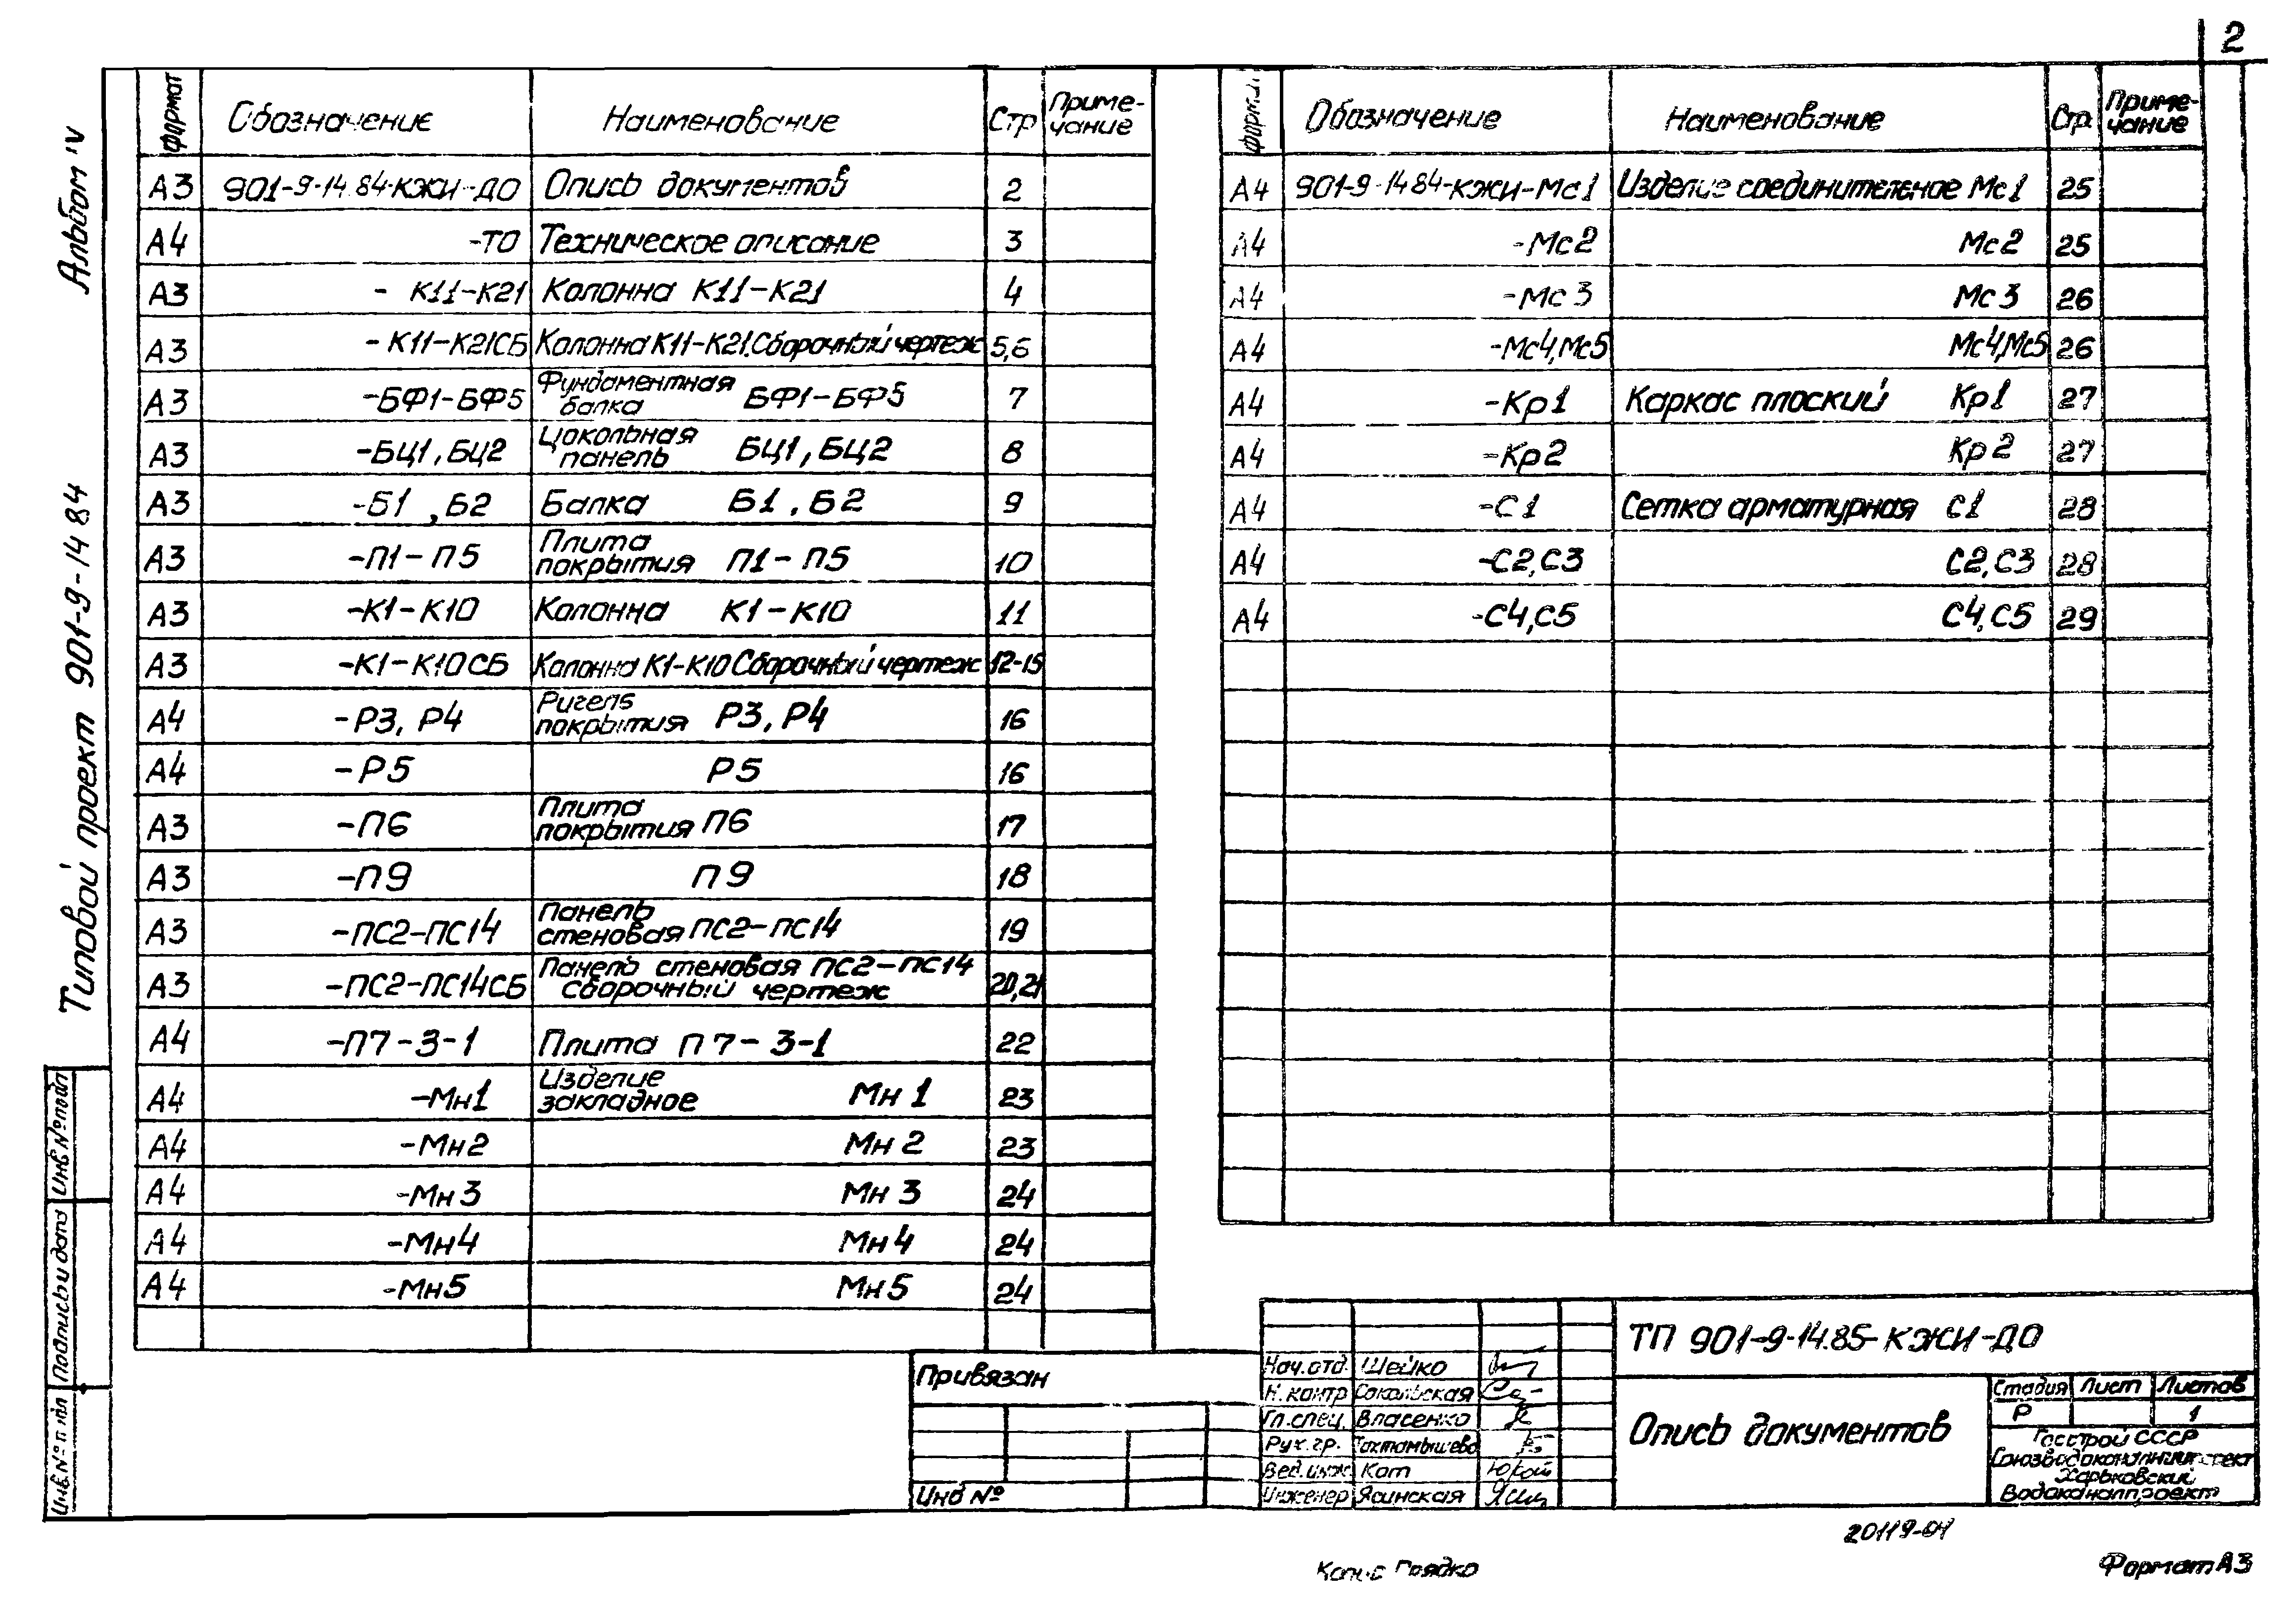 2
Альбом IV
Типовой проект 901-9-14 84
Инв № подл
Подпись и дата
формат Обозначение Наименование Стр Приме-
чание
А3 901-9-14.84-КЖИ-ДО Опись документов 2
А4 -ТО Техническое описание 3
А3 - К11-К21 Колонна К11-К21 4
А3 -К11-К21СБ Колонна К11-К21.Сборочный чертеж 5,6
А3 -БФ1-БФ5 Фундаментная
балка БФ1-БФ5 7
А3 -БЦ1,БЦ2 Цокольная
панель БЦ1,БЦ2 8
А3 -Б1 ,Б2 Балка Б1,Б2 9
А3 -П1-П5 Плита
покрытия П1-П5 10
А3 -К1-К10 Колонна К1-К10 11
А3 -К1-К10СБ Колонна К1-К10 Сборочный чертеж 12-15
А4 -Р3, Р4 Ригель
покрытия Р3, Р4 16
А4 -Р5 Р5 16
А3 -П6 Плита
покрытия П6 17
А3 -П9 П9 18
А3 -ПС2-ПС14 Панель
стеновая ПС2-ПС14 19
А3 -ПС2-ПС14СБ Панель стеновая ПС2-ПС14
сборочный чертеж 20,21
А4 -П7-3-1 Плита П7-3-1 22
А4 -Мн1 Изделие
закладное Мн 1 23
А4 -Мн2 Мн 2 23
А4 -Мн3 Мн 3 24
А4 -Мн4 Мн4 24
А4 -Мн5 Мн5 24
Обозначение Наименование Стр. Приме-
чание
А4 901-9-14 84-КЖИ-Мс1 Изделие соединительное Мс1 25
А4 -Мс2 Мс2 25
А4 -Мс3 Мс3 26
А4 -Мс4,Мс5 Мс4,Мс5 26
А4 -Кр1 Каркас плоский Кр1 27
А4 -Кр2 Кр2 27
А4 -С1 Сетка арматурная С1 28
А4 -С2,С3 С2,С3 28
А4 -С4,С5 С4,С5 29
Привязан
Инв №
Нач.отд. Шейко
Н.контр Сокольская
Гл.спец. Власенко
Рук.гр.
Вед.инж Кот
Инженер Ясинская
ТП 901-9-14.85-КЖИ-ДО
Опись документов
Стадия Лист Листов
Р 1
Госстрой СССР
Союзводоканалпроект
Харьковский
Водоканалпроект
20119-04
Грядко
Формат А3